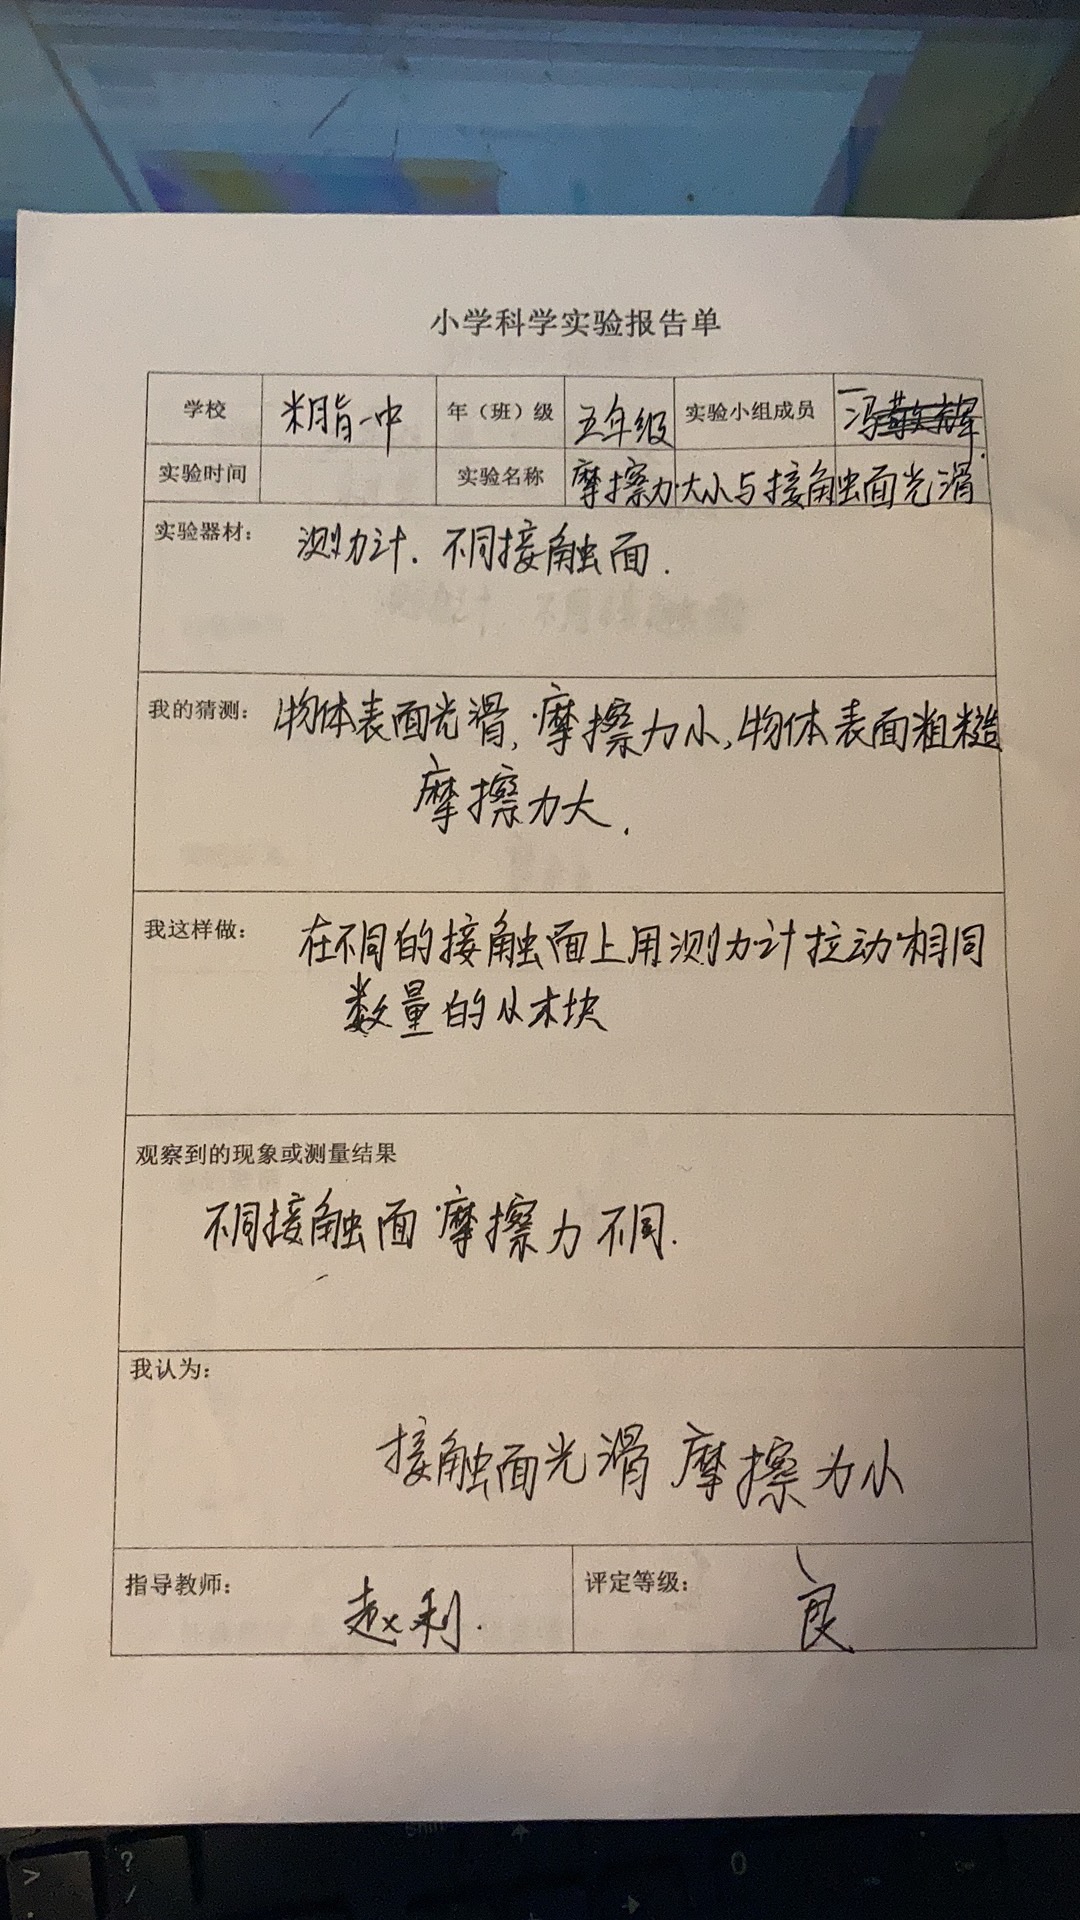 小学科学实验报告单
学校 米脂一中 年（班）级 五年级 实验小组成员 冯
实验时间 实验名称 摩擦力大小与接触面光滑
实验器材： 测力计. 不同接触面.
我的猜测： 物体表面光滑, 摩擦力小, 物体表面粗糙
摩擦力大.
我这样做： 在不同的接触面上用测力计拉动相同
数量的小木块
观察到的现象或测量结果
不同接触面 摩擦力不同.
我认为：
接触面光滑 摩擦力小
指导教师： 赵利. 评定等级： 良
Shift
?
/
>
0